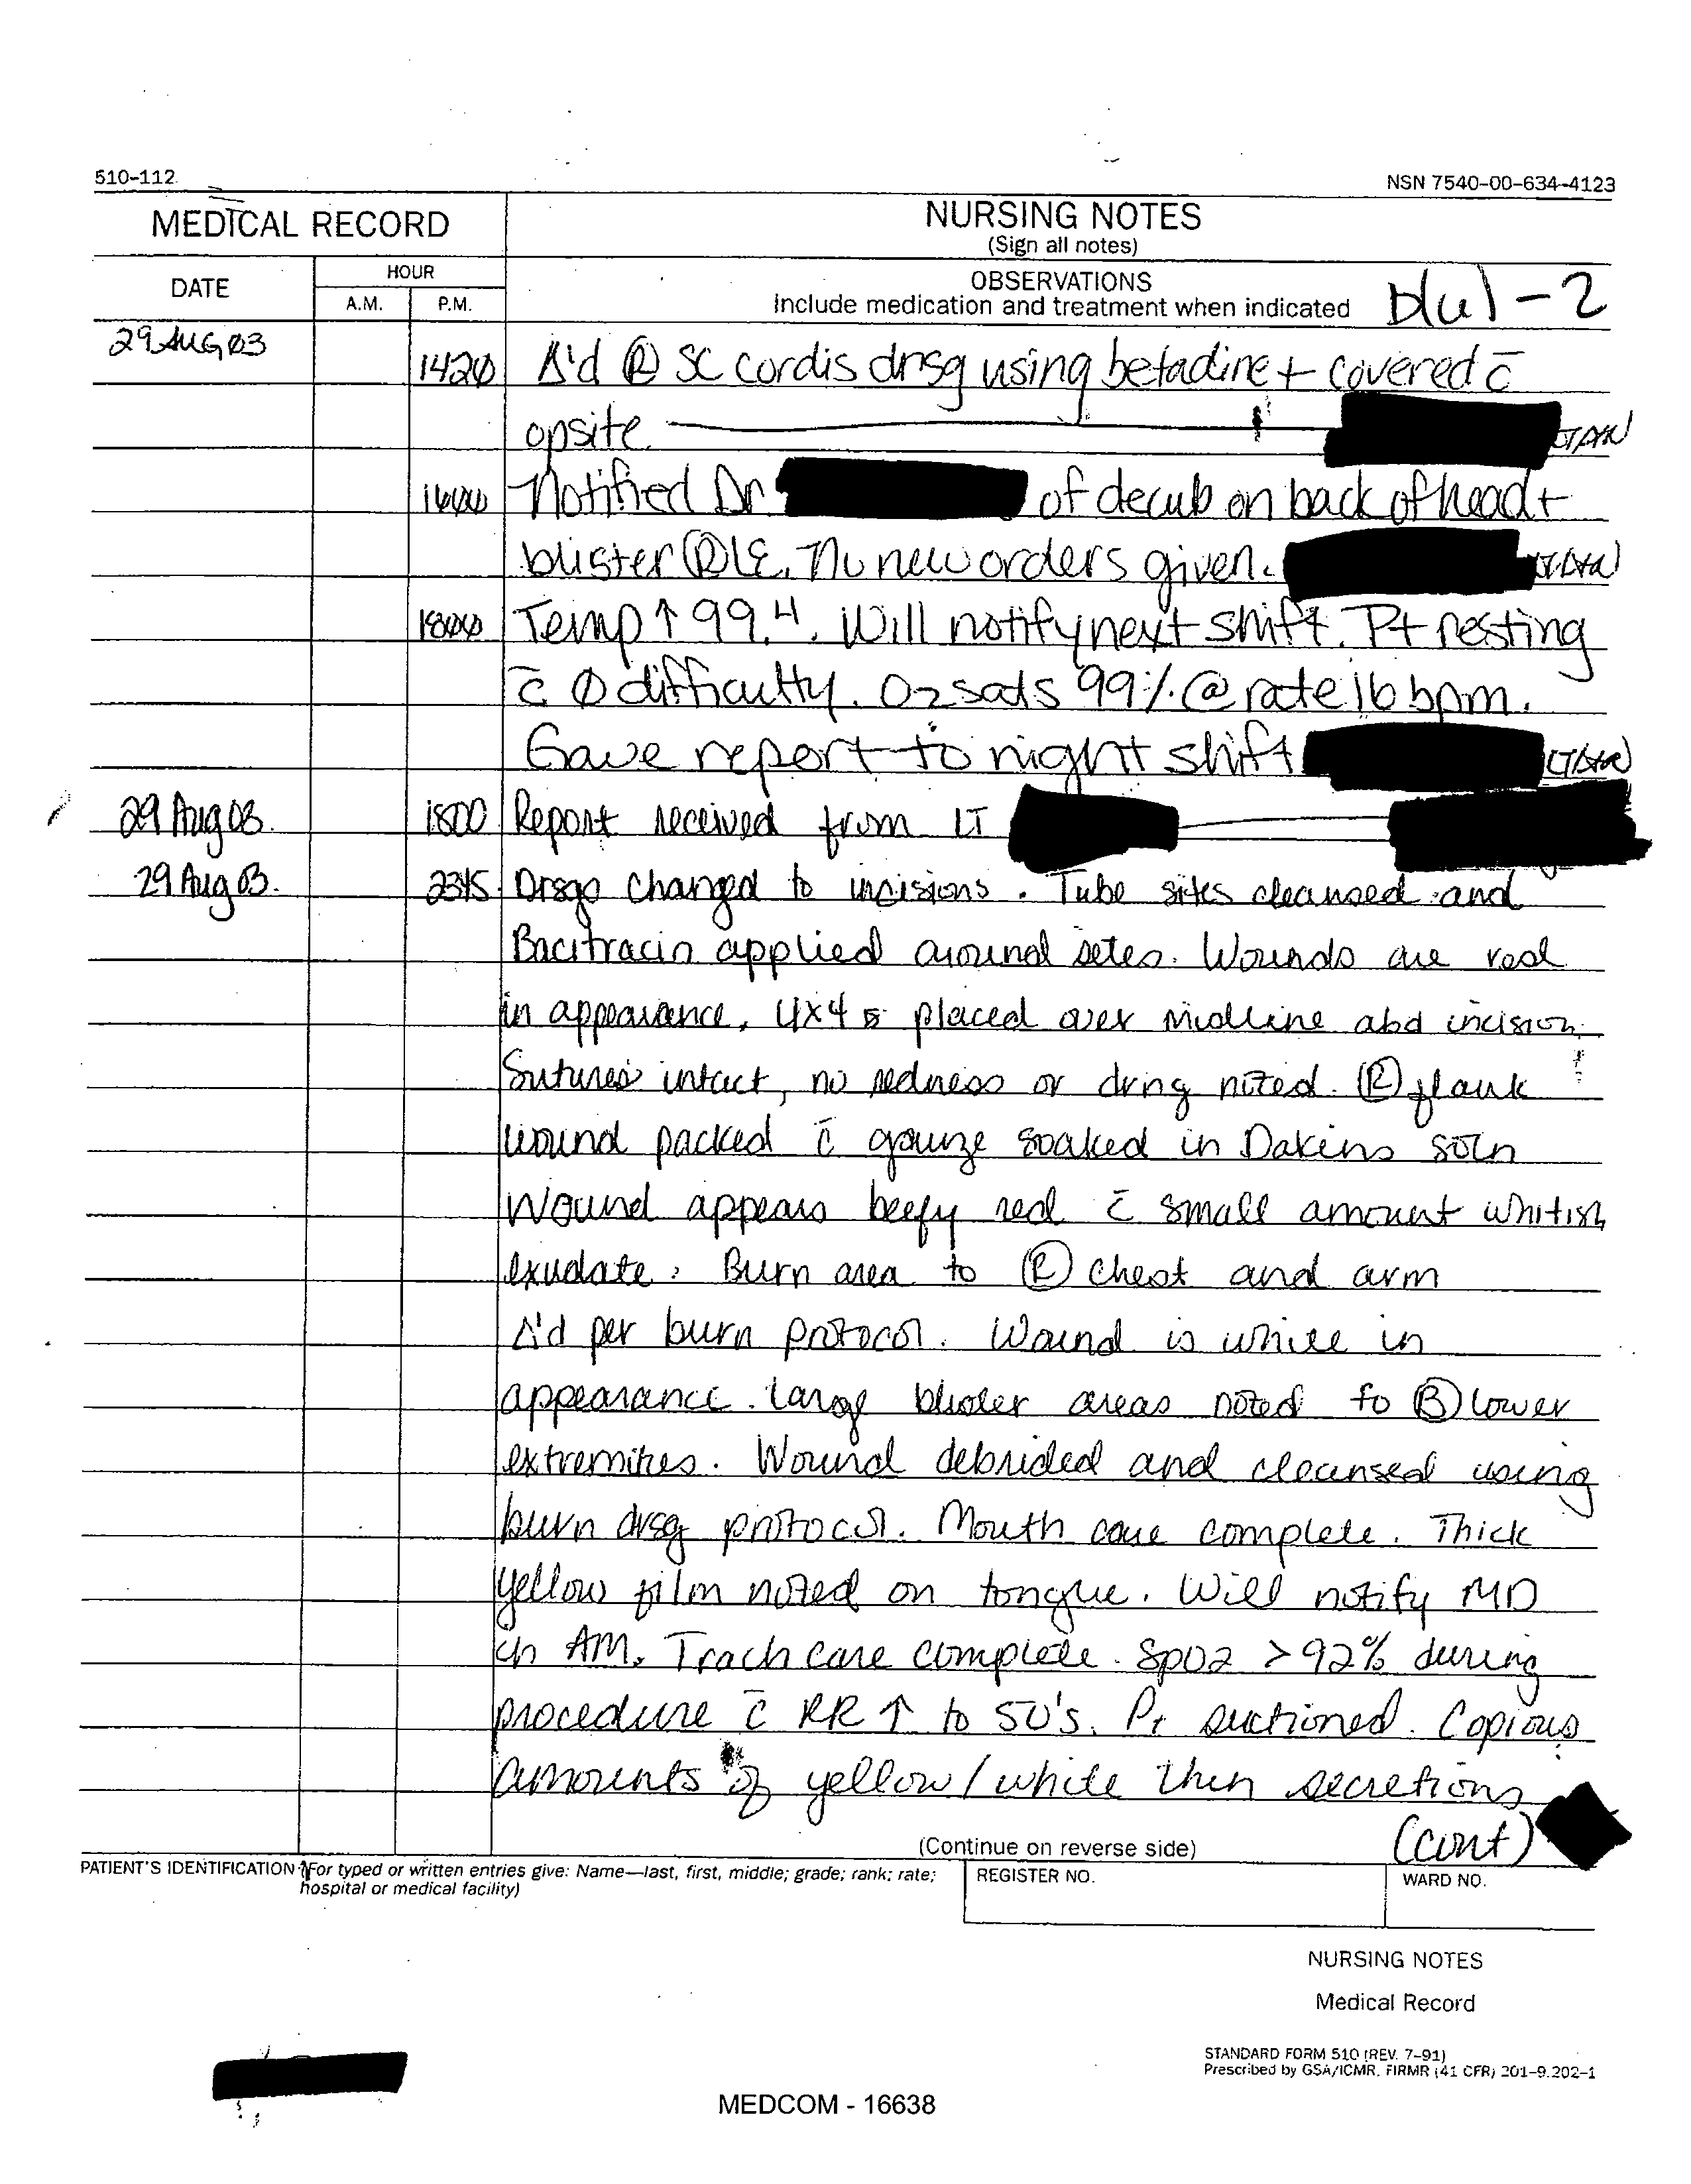 510-112
NSN 7540-00-634-4123
MEDICAL RECORD
NURSING NOTES
(Sign all notes)
DATE
HOUR
A.M.
P.M.
OBSERVATIONS
Include medication and treatment when indicated
b(6)-2
29 AUG 03
1420 Δ'd Ⓡ SC cordis drsg using betadine + covered c̄
opsite
1600 Notified Dr of decub on back of head +
blister Ⓡ LE. No new orders given.
1800 Temp ↑ 99.4. Will notify next shift. Pt resting
c̄ Ø difficulty. O2 sats 99% @ rate 16 bpm.
Gave report to night shift
29 Aug 03 1800 Report received from LT
29 Aug 03 2345 Drsgs changed to incisions. Tube sites cleansed and
Bacitracin applied around sites. Wounds are red
in appearance. 4x4s placed over midline abd incision
Sutures intact, no redness or drng noted. Ⓡ flank
wound packed c̄ gauze soaked in Dakins soln
Wound appears beefy red c̄ small amount whitish
exudate. Burn area to Ⓡ chest and arm
Δ'd per burn protocol. Wound is white in
appearance. Large blister areas noted to Ⓑ lower
extremities. Wound debrided and cleansed using
burn drsg protocol. Mouth care complete. Thick
yellow film noted on tongue. Will notify MD
in AM. Trach care complete. SpO2 >92% during
procedure c̄ RR ↑ to 50's. Pt suctioned. Copious
amounts of yellow/white thin secretions
(cont)
(Continue on reverse side)
PATIENT'S IDENTIFICATION (For typed or written entries give: Name—last, first, middle; grade; rank; rate;
hospital or medical facility)
REGISTER NO.
WARD NO.
NURSING NOTES
Medical Record
STANDARD FORM 510 (REV. 7-91)
Prescribed by GSA/ICMR, FIRMR (41 CFR) 201-9.202-1
MEDCOM - 16638